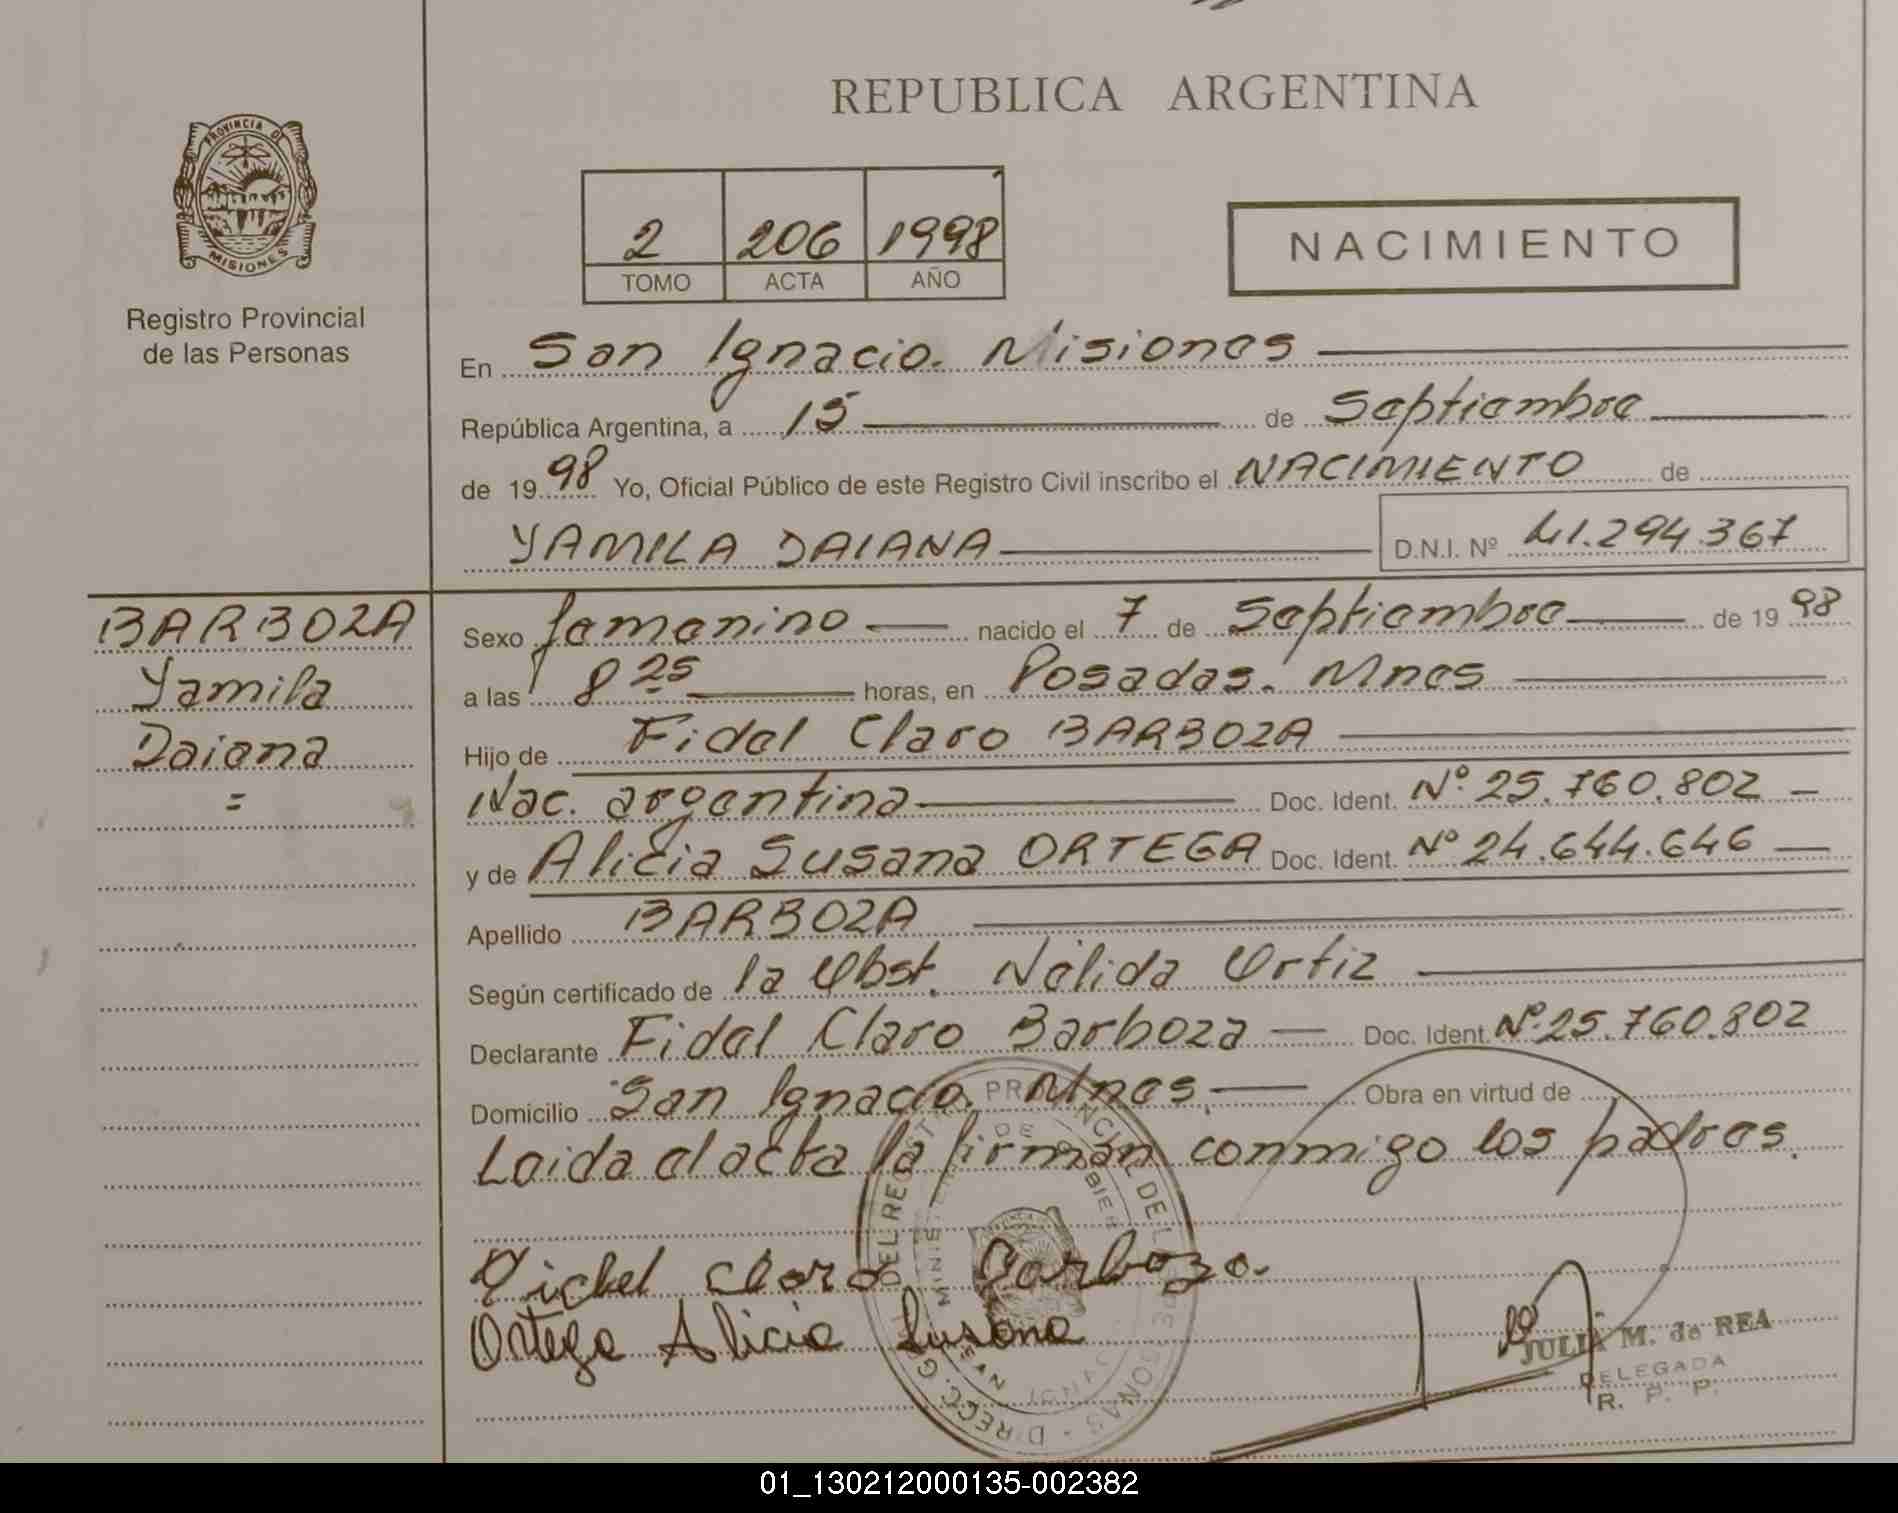 REPUBLICA ARGENTINA
PROVINCIA DE
MISIONES
Registro Provincial
de las Personas
2 206 1998
TOMO ACTA AÑO
NACIMIENTO
En San Ignacio. Misiones
República Argentina, a 15 de Septiembre
de 1998 Yo, Oficial Público de este Registro Civil inscribo el NACIMIENTO de
YAMILA DAIANA D.N.I. Nº 41.294.367
BARBOZA
Yamila
Daiana
=
Sexo femenino nacido el 7 de Septiembre de 1998
a las 8 25 horas, en Posadas. Mnes
Hijo de Fidel Claro BARBOZA
Nac. argentina Doc. Ident. Nº 25.760.802
y de Alicia Susana ORTEGA Doc. Ident. Nº 24.644.646
Apellido BARBOZA
Según certificado de la Obst. Nélida Ortiz
Declarante Fidel Claro Barboza Doc. Ident. Nº 25.760.802
Domicilio San Ignacio. Mnes. Obra en virtud de
Leida el acta la firman conmigo los padres.
Claro Barbozo.
Ortega Alicia Susana
JULIA M. de REA
DELEGADA
R. P. P.
01_130212000135-002382